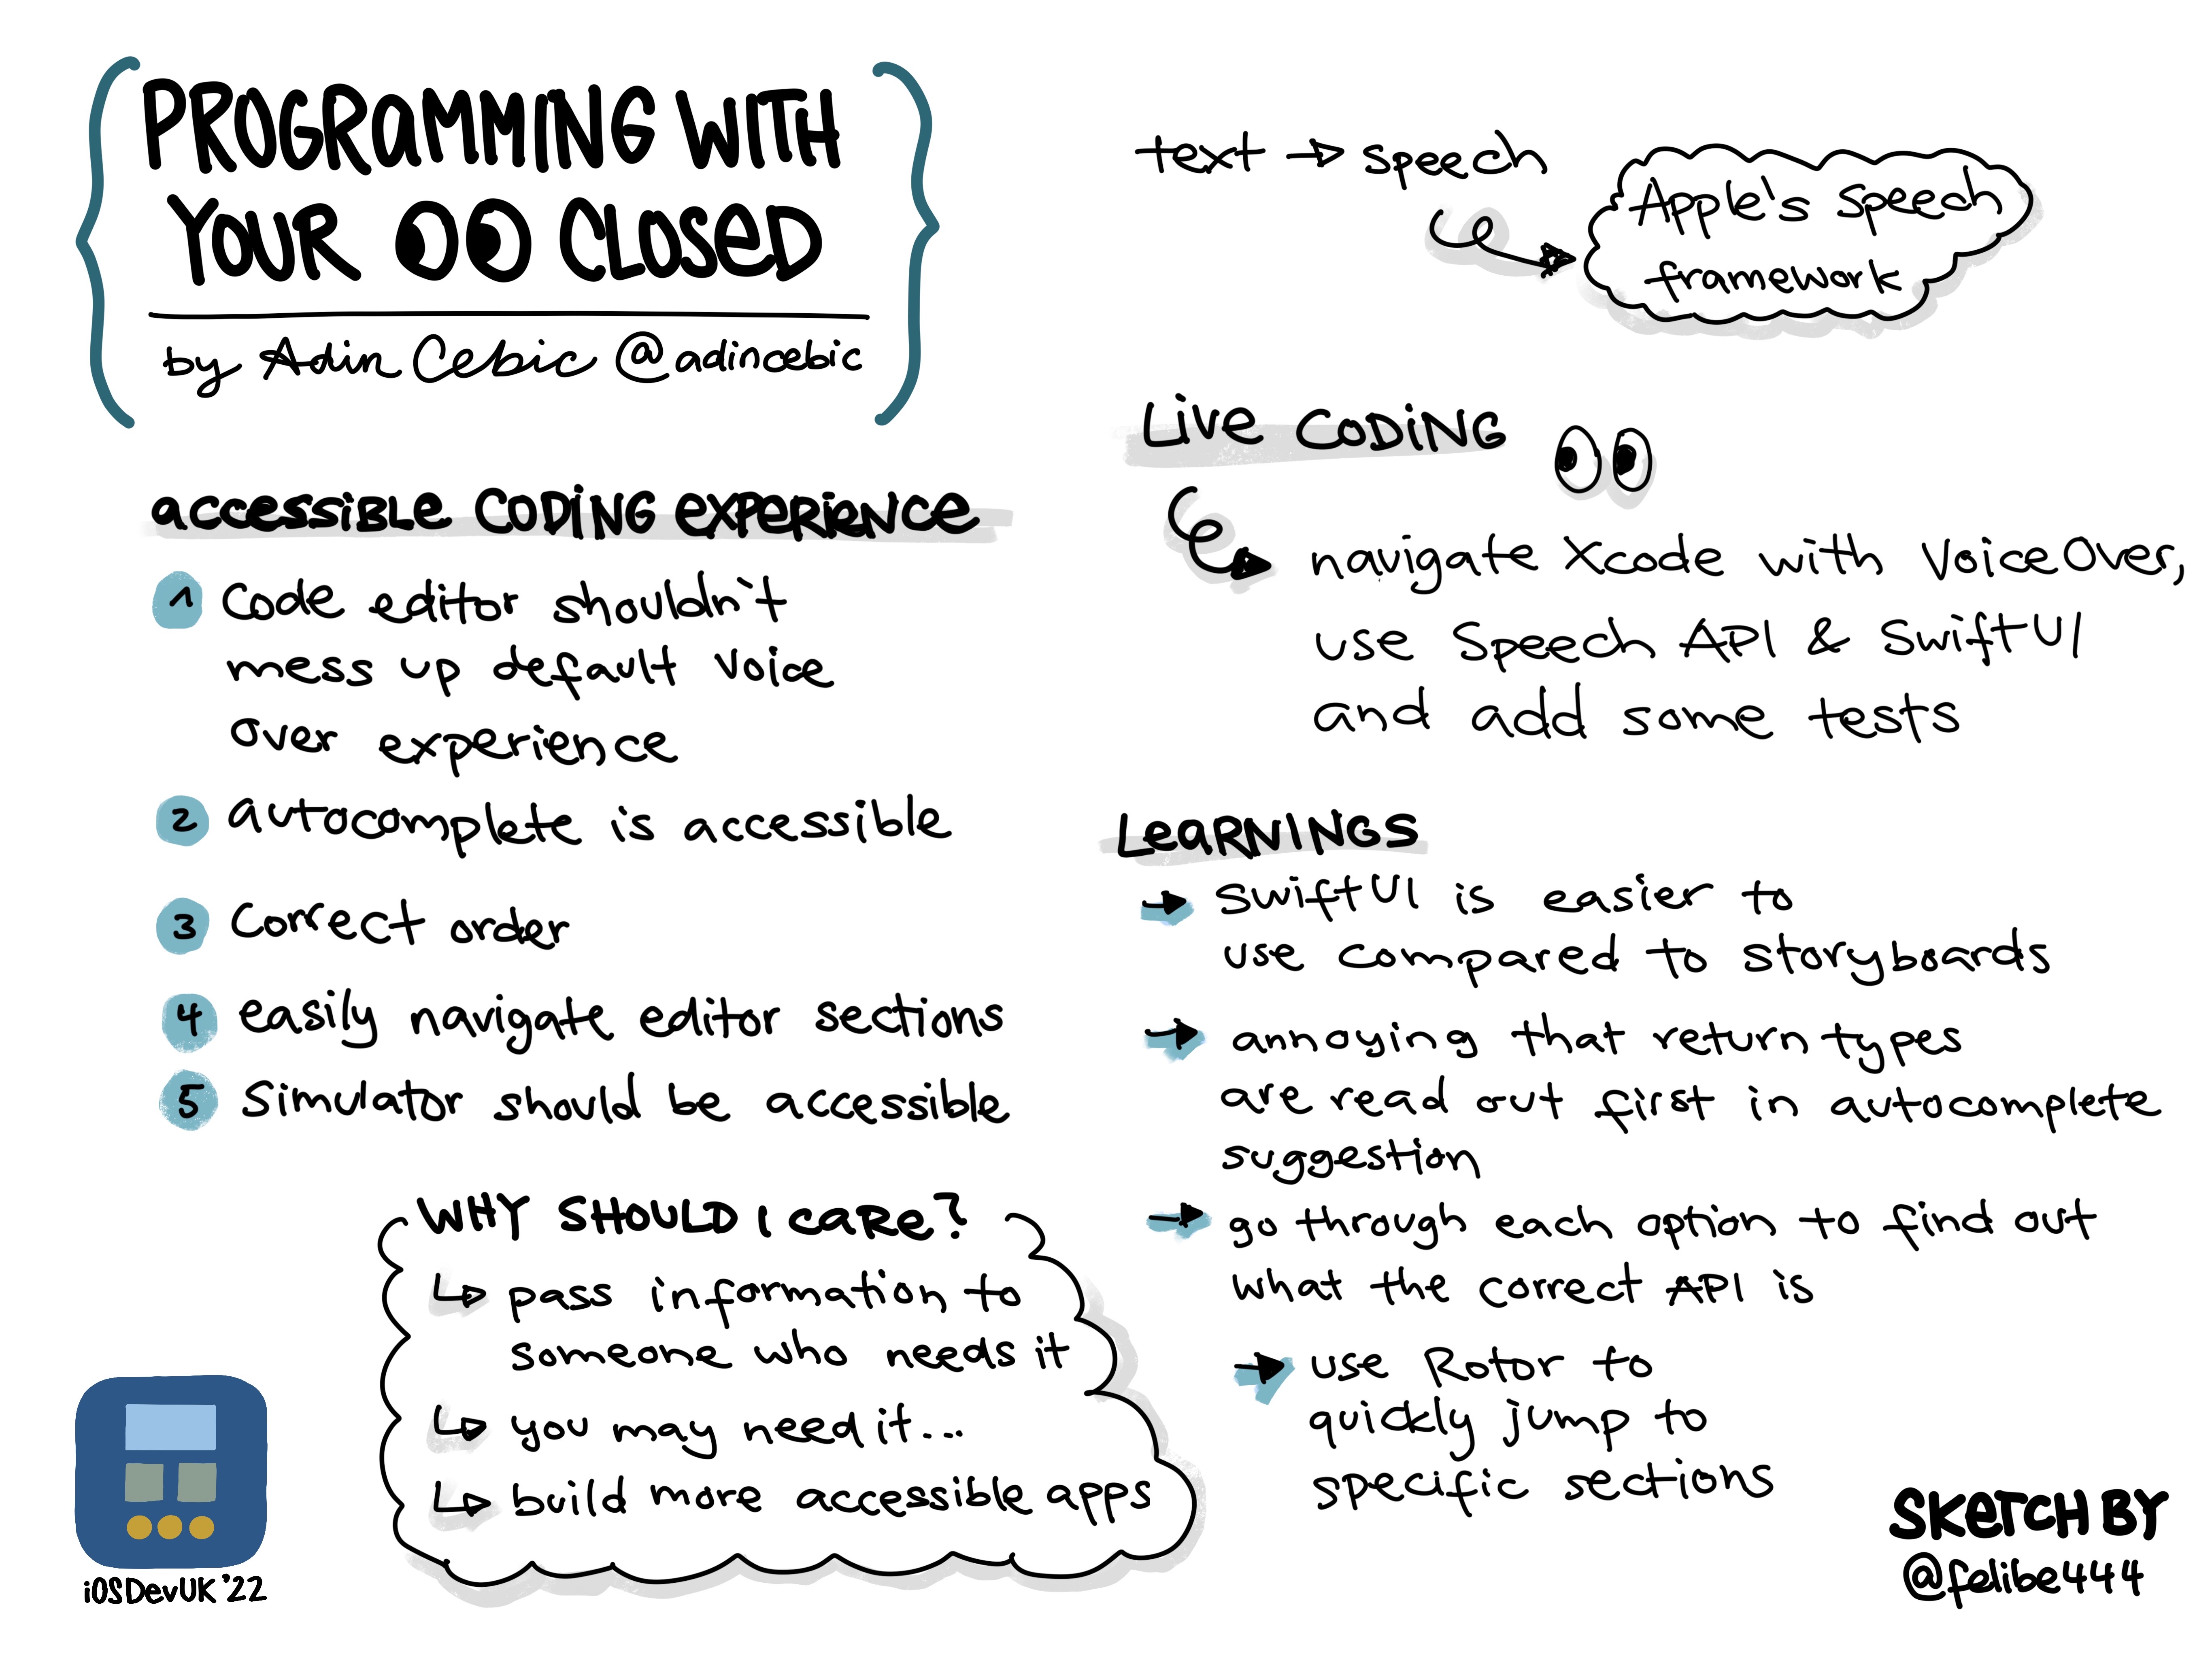 PROGRAMMING WITH
YOUR CLOSED
by Adin Cebic @adincebic
accessible CODING experience
1 Code editor shouldn't
mess up default Voice
Over experience
2 autocomplete is accessible
3 Correct order
4 easily navigate editor sections
5 Simulator should be accessible
WHY SHOULD I CARE?
pass information to
someone who needs it
you may need it...
build more accessible apps
iOSDevUK '22
text → speech
Apple's speech
framework
Live CODING
navigate Xcode with VoiceOver,
use Speech API & SwiftUI
and add some tests
LEARNINGS
→ SwiftUI is easier to
use compared to storyboards
→ annoying that return types
are read out first in autocomplete
suggestion
→ go through each option to find out
what the correct API is
→ use Rotor to
quickly jump to
specific sections
SKETCH BY
@felibe444